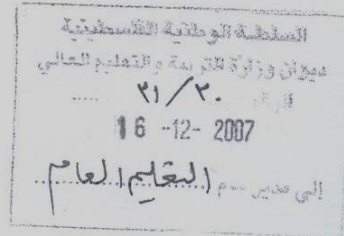 السلطة الوطنية الفلسطينية
ديوان وزارة التربية والتعليم العالي
الرقم ٣١/٢٠
16 -12- 2007
إلى مدير عام التعليم العام